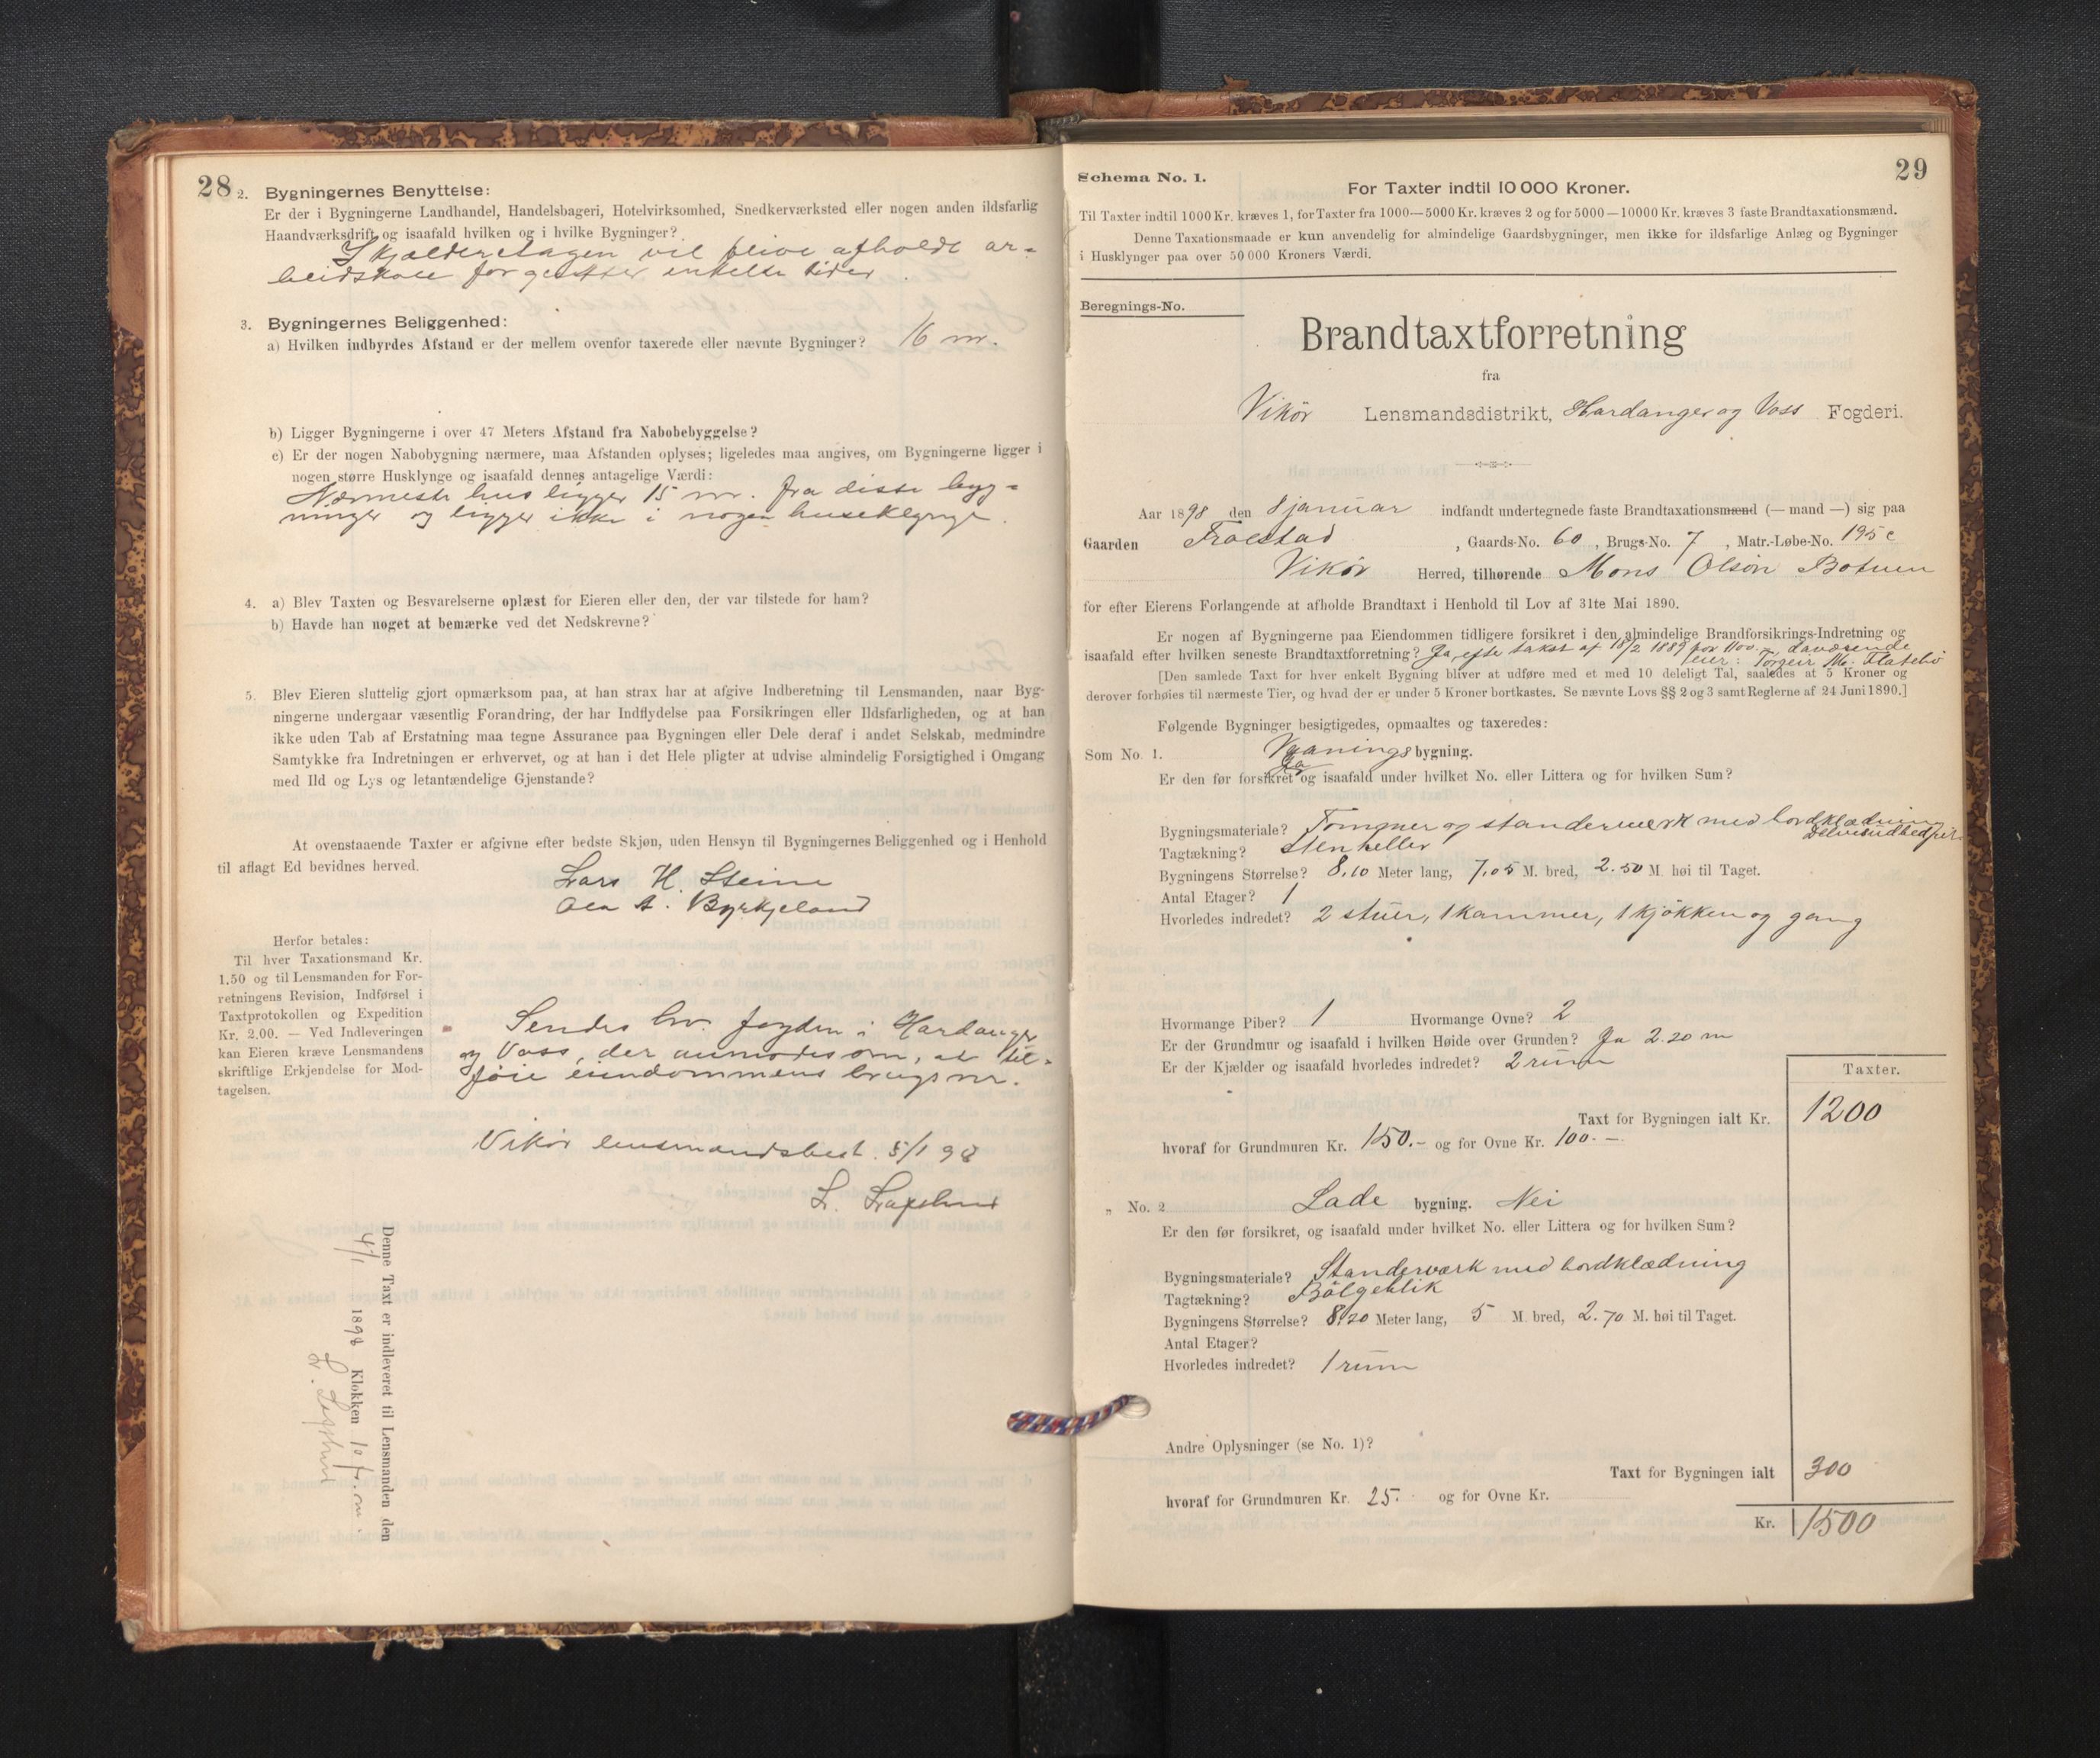 28
2. Bygningernes Benyttelse:
Er der i Bygningerne Landhandel, Handelsbageri, Hotelvirksomhed, Snedkerværksted eller nogen anden ildsfarlig
Haandværksdrift og isaafald hvilken og i hvilke Bygninger?
I kjælderetagen vil blive afholdt ar-
beidskole for gutter enkelte tider.
3. Bygningernes Beliggenhed:
a) Hvilken indbyrdes Afstand er der mellem ovenfor taxerede eller nævnte Bygninger? 16 m.
b) Ligger Bygningerne i over 47 Meters Afstand fra Nabobebyggelse?
c) Er der nogen Nabobygning nærmere, maa Afstanden oplyses; ligeledes maa angives, om Bygningerne ligger i
nogen større Husklynge og isaafald dennes antagelige Værdi:
Nærmeste hus ligger 15 m. fra disse byg-
ninger og ligger ikke i nogen huseklynge.
4. a) Blev Taxten og Besvarelserne oplæst for Eieren eller den, der var tilstede for ham?
b) Havde han noget at bemærke ved det Nedskrevne?
5. Blev Eieren sluttelig gjort opmærksom paa, at han strax har at afgive Indberetning til Lensmanden, naar Byg-
ningerne undergaar væsentlig Forandring, der har Indflydelse paa Forsikringen eller Ildsfarligheden, og at han
ikke uden Tab af Erstatning maa tegne Assurance paa Bygningen eller Dele deraf i andet Selskab, medmindre
Samtykke fra Indretningen er erhvervet, og at han i det Hele pligter at udvise almindelig Forsigtighed i Omgang
med Ild og Lys og letantændelige Gjenstande?
At ovenstaaende Taxter er afgivne efter bedste Skjøn, uden Hensyn til Bygningernes Beliggenhed og i Henhold
til aflagt Ed bevidnes herved.
Lars H. Steine
Ola A. Byrkjeland
Herfor betales:
Til hver Taxationsmand Kr.
1.50 og til Lensmanden for For-
retningens Revision, Indførsel i
Taxtprotokollen og Expedition
Kr. 2.00. — Ved Indleveringen
kan Eieren kræve Lensmandens
skriftlige Erkjendelse for Mod-
tagelsen.
Sendes hr. fogden i Hardanger
og Voss, der anmodes om, at til-
føie eiendommens brugsnr.
Vikør lensmandsbest. 5/1 98
L.
Denne Taxt er indleveret til Lensmanden den
4/1 1898 Klokken 10 fr. m.
L.
29
Schema No. 1.
For Taxter indtil 10 000 Kroner.
Til Taxter indtil 1000 Kr. kræves 1, for Taxter fra 1000—5000 Kr. kræves 2 og for 5000—10000 Kr. kræves 3 faste Brandtaxationsmænd.
Denne Taxationsmaade er kun anvendelig for almindelige Gaardsbygninger, men ikke for ildsfarlige Anlæg og Bygninger
i Husklynger paa over 50 000 Kroners Værdi.
Beregnings-No.
Brandtaxtforretning
fra
Vikör Lensmandsdistrikt, Hardanger og Voss Fogderi.
Aar 1898 den 8 januar indfandt undertegnede faste Brandtaxationsmænd (— mand —) sig paa
Gaarden Traastad, Gaards-No. 60, Brugs-No. 7, Matr.-Løbe-No. 195 c
Vikör Herred, tilhørende Mons Olson Botnen
for efter Eierens Forlangende at afholde Brandtaxt i Henhold til Lov af 31te Mai 1890.
Er nogen af Bygningerne paa Eiendommen tidligere forsikret i den almindelige Brandforsikrings-Indretning og
isaafald efter hvilken seneste Brandtaxtforretning? Ja, efter takst af 18/2 1889 for 1100.— daværende
eier: Torgeir M. Flatebö
[Den samlede Taxt for hver enkelt Bygning bliver at udføre med et med 10 deleligt Tal, saaledes at 5 Kroner og
derover forhøies til nærmeste Tier, og hvad der er under 5 Kroner bortkastes. Se nævnte Lovs §§ 2 og 3 samt Reglerne af 24 Juni 1890.]
Følgende Bygninger besigtigedes, opmaaltes og taxeredes:
Som No. 1. Vaanings bygning.
Ja
Er den før forsikret og isaafald under hvilket No. eller Littera og for hvilken Sum?
Bygningsmateriale? Tömmer og standerværk med bordklædning
Tagtækning? Stenheller
Bygningens Størrelse? 8,10 Meter lang, 7,05 M. bred, 2.50 M. høi til Taget.
Antal Etager? 1
Hvorledes indredet? 2 stuer, 1 kammer, 1 kjökken og gang
Hvormange Piber? 1 Hvormange Ovne? 2
Er der Grundmur og isaafald i hvilken Høide over Grunden? Ja 2.20 m
Er der Kjælder og isaafald hvorledes indredet? 2 rum
Taxter.
Taxt for Bygningen ialt Kr. 1200
hvoraf for Grundmuren Kr. 150.- og for Ovne Kr. 100.-
„ No. 2 Lade bygning. Nei
Er den før forsikret, og isaafald under hvilket No. eller Littera og for hvilken Sum?
Bygningsmateriale? Standerværk med bordklædning
Tagtækning? Bölgeblik
Bygningens Størrelse? 8,20 Meter lang, 5 M. bred, 2.70 M. høi til Taget.
Antal Etager?
Hvorledes indredet? 1 rum
Andre Oplysninger (se No. 1)?
Taxt for Bygningen ialt 300
hvoraf for Grundmuren Kr. 25.- og for Ovne Kr.
Kr. 1500